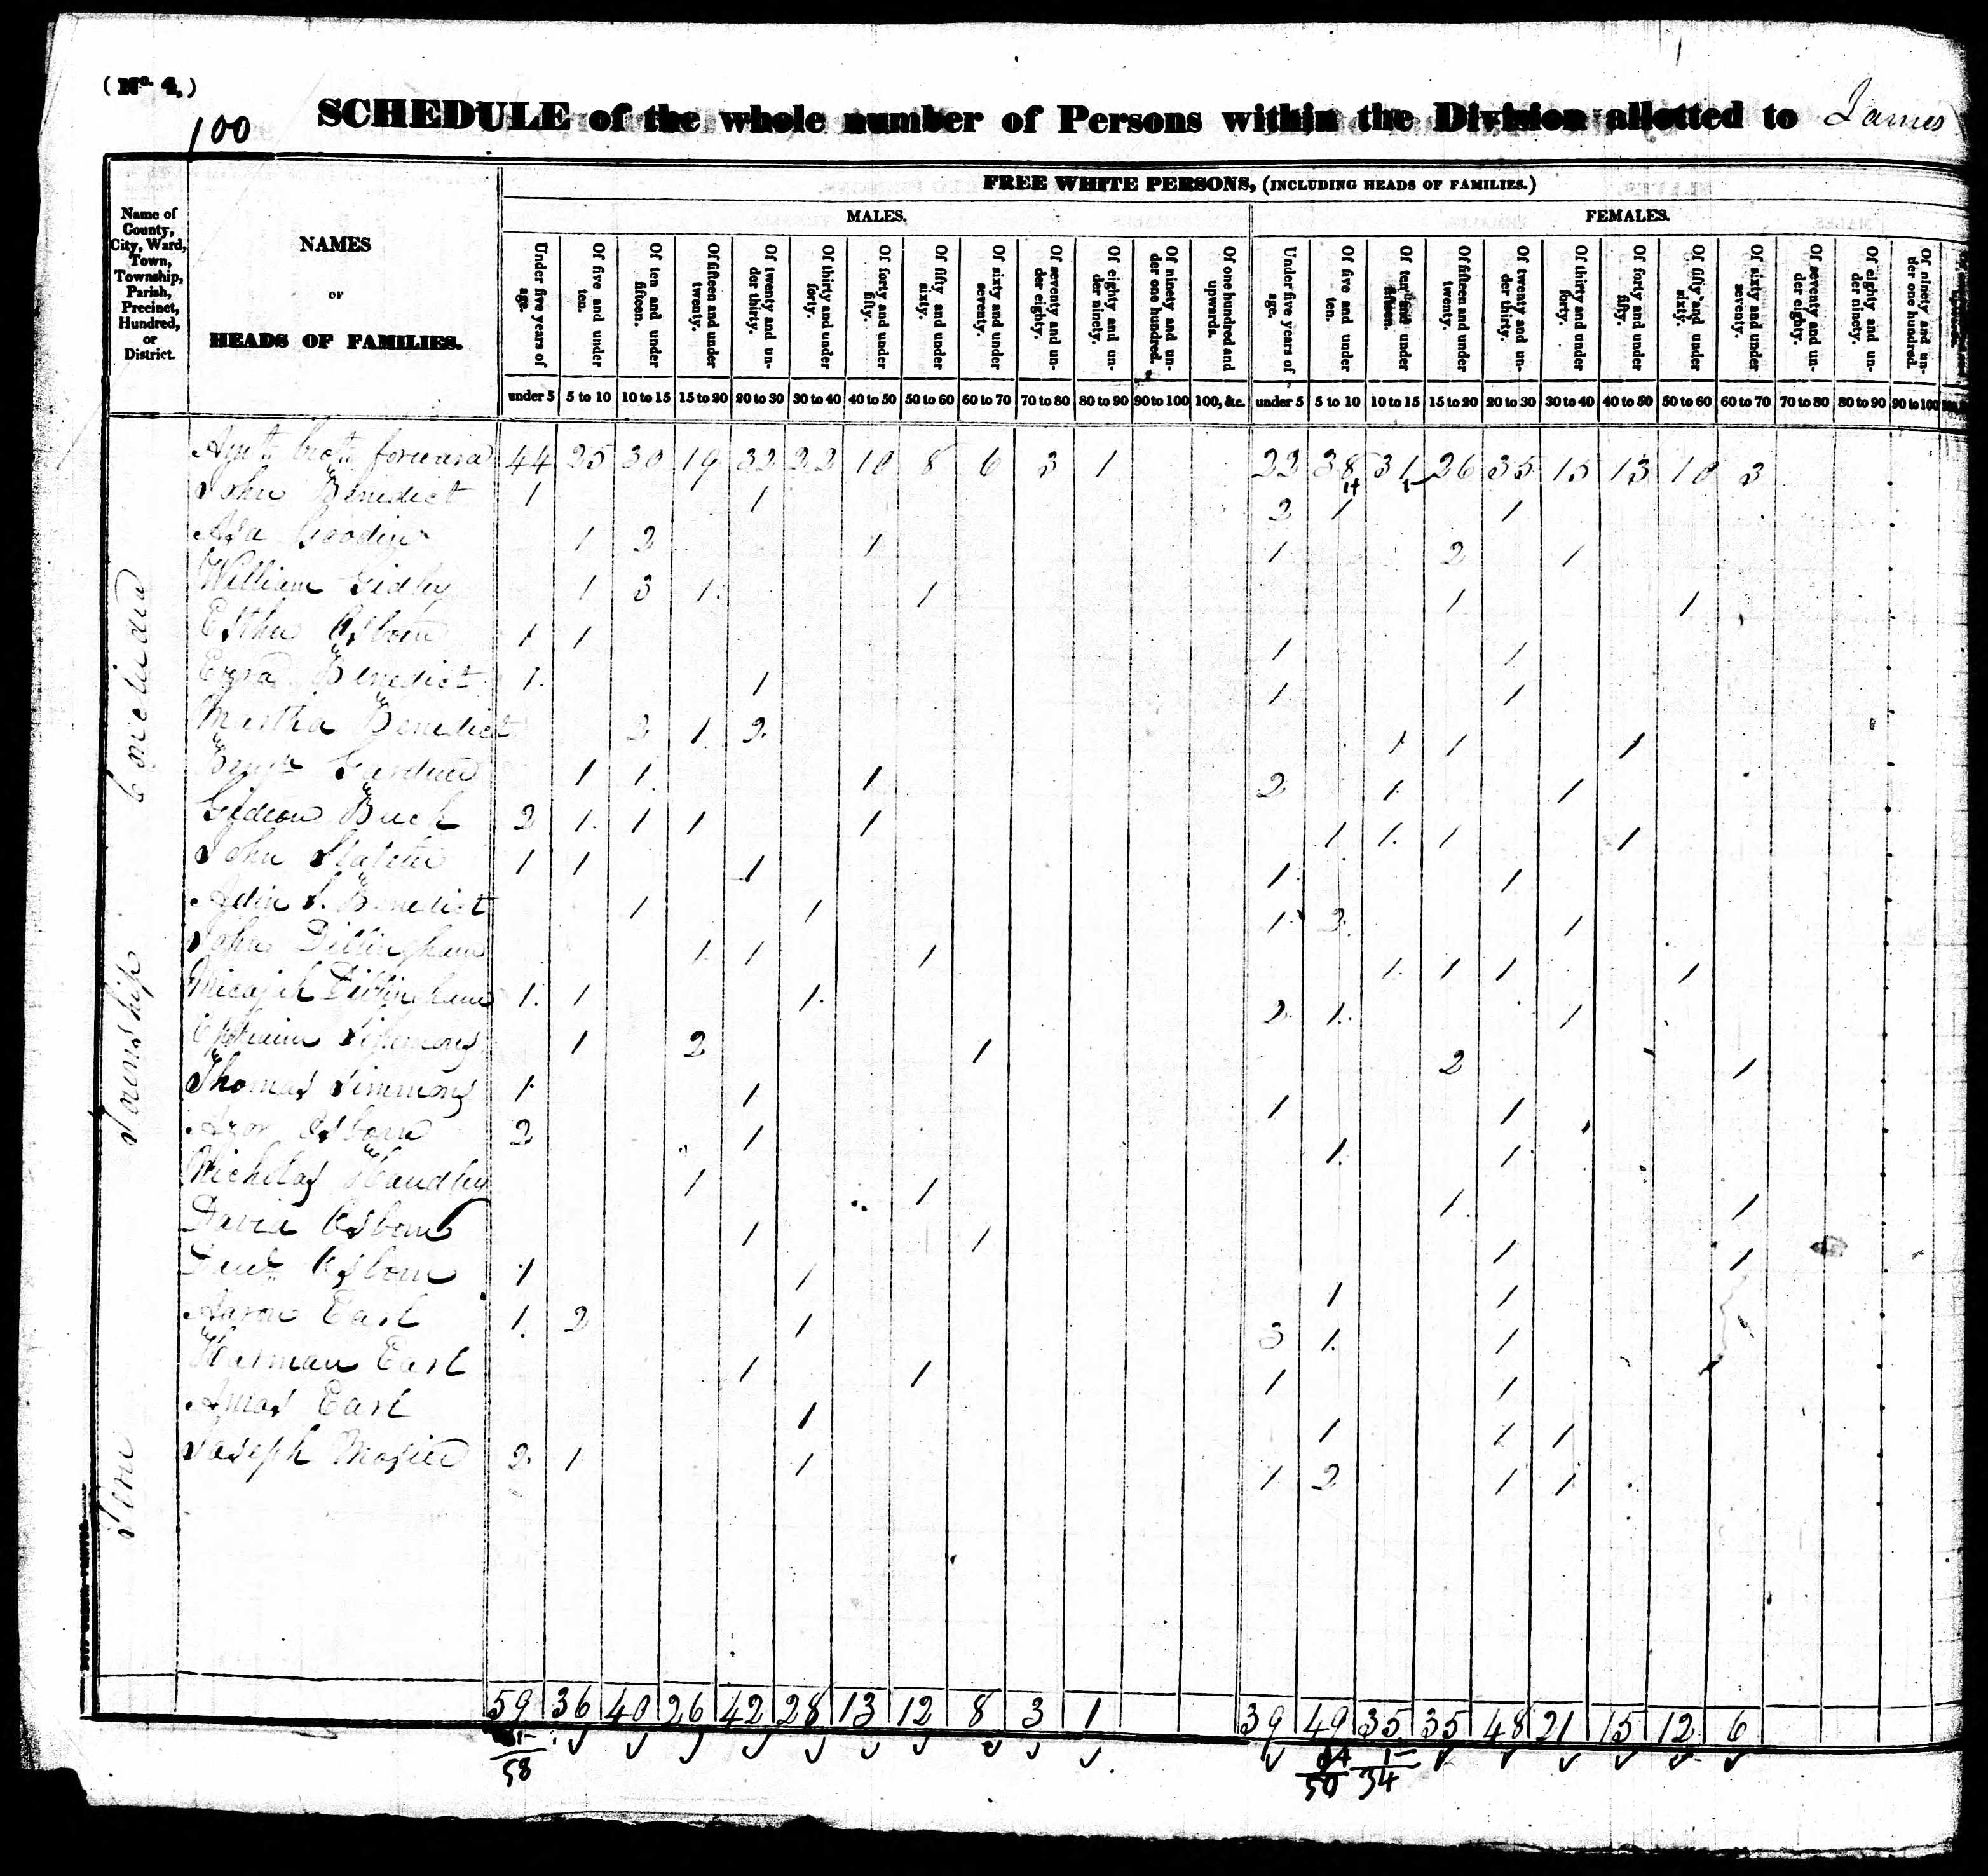 (No. 4,)
100
SCHEDULE of the whole number of Persons within the Division allotted to James
FREE WHITE PERSONS, (INCLUDING HEADS OF FAMILIES.)
MALES. FEMALES.
Name of County, City, Ward, Town, Township, Parish, Precinct, Hundred, or District.
NAMES
OF
HEADS OF FAMILIES.
Under five years of age. Of five and under ten. Of ten and under fifteen. Of fifteen and under twenty. Of twenty and under thirty. Of thirty and under forty. Of forty and under fifty. Of fifty and under sixty. Of sixty and under seventy. Of seventy and under eighty. Of eighty and under ninety. Of ninety and under one hundred. Of one hundred and upwards. Under five years of age. Of five and under ten. Of ten and under fifteen. Of fifteen and under twenty. Of twenty and under thirty. Of thirty and under forty. Of forty and under fifty. Of fifty and under sixty. Of sixty and under seventy. Of seventy and under eighty. Of eighty and under ninety. Of ninety and under one hundred.
under 5 5 to 10 10 to 15 15 to 20 20 to 30 30 to 40 40 to 50 50 to 60 60 to 70 70 to 80 80 to 90 90 to 100 100, &c. under 5 5 to 10 10 to 15 15 to 20 20 to 30 30 to 40 40 to 50 50 to 60 60 to 70 70 to 80 80 to 90 90 to 100
forward 44 25 30 19 32 22 10 8 6 3 1 22 38 31 26 35 15 13 10 3
John Benedict 1 1 2 1 1
Asa 1 2 1 1 2 1
William Sidley 1 3 1 1 1 1
Esther Osborn 1 1 1 1
Ezra Benedict 1 1 1 1
Martha Benedict 2 1 2 1 1 1
Gardner 1 1 1 2 1 1
Gideon Buck 2 1 1 1 1 1 1 1 1
John 1 1 1 1 1
Benedict 1 1 1 2 1
John Dillingham 1 1 1 1 1 1 1
Micajah Dillingham 1 1 1 2 1 1
Ephraim Simmons 1 2 1 2 1
Thomas Simmons 1 1 1 1
Azor Osborn 2 1 1 1
Nicholas 1 1 1 1
David Osborn 1 1 1 1
Osborn 1 1 1 1
Aaron Earl 1 2 1 3 1 1
Harman Earl 1 1 1 1
Amos Earl 1 1 1 1
Joseph Mosier 2 1 1 1 2 1 1
Township
59 36 40 26 42 28 13 12 8 3 1 39 49 35 35 48 21 15 12 6
58 50 34